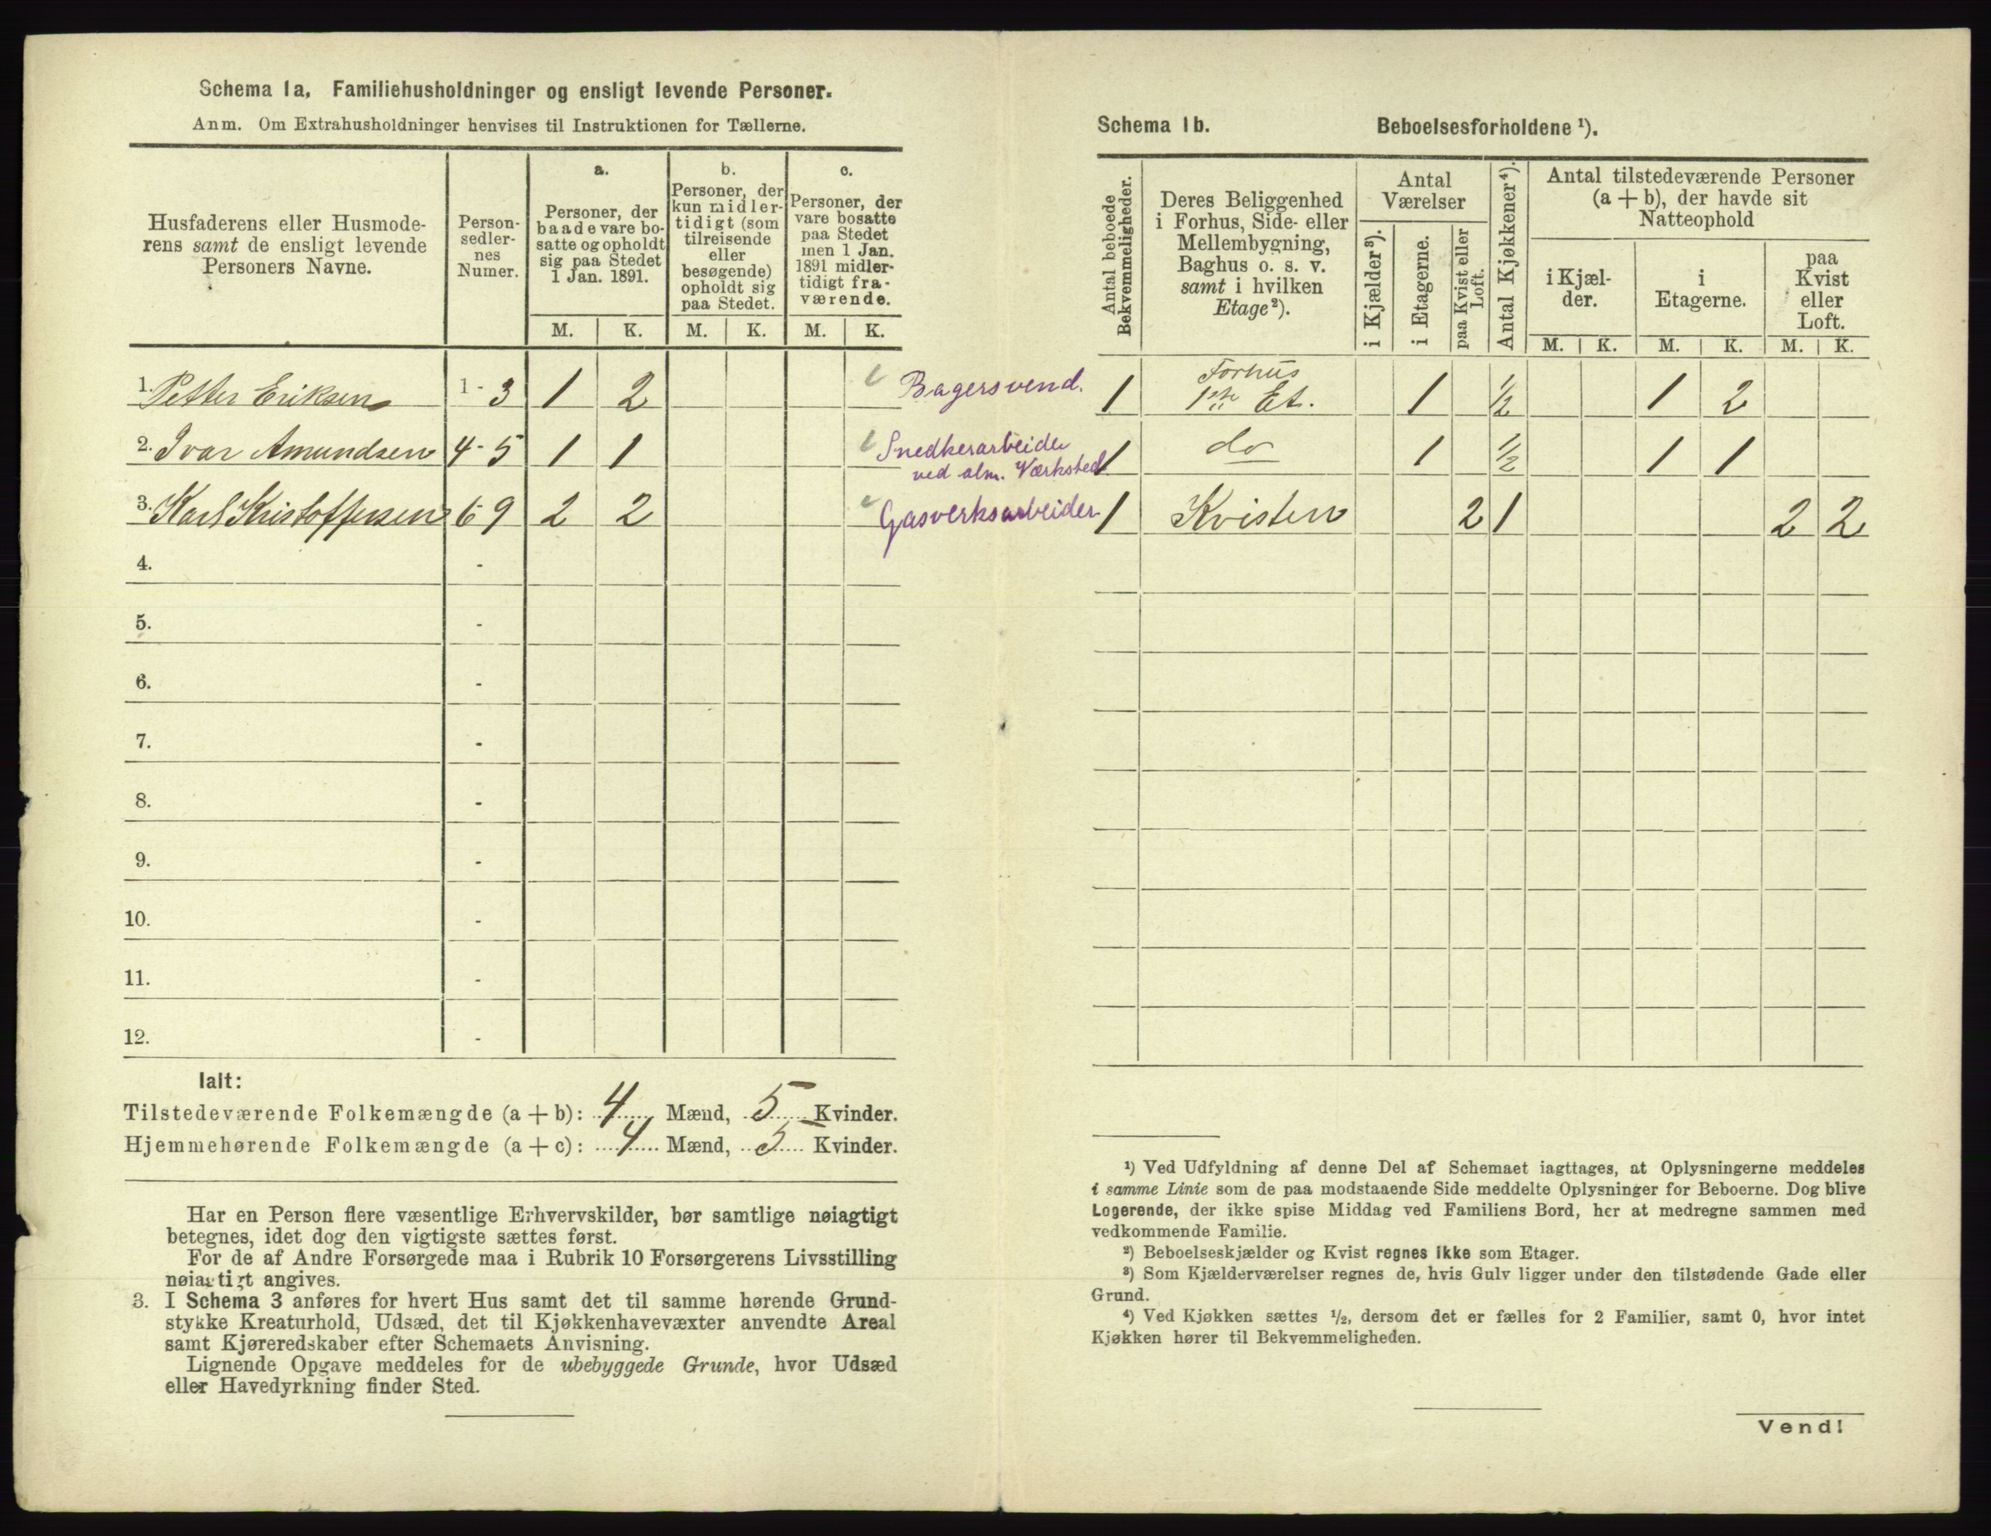 Schema 1a. Familiehusholdninger og ensligt levende Personer.
Anm. Om Extrahusholdninger henvises til Instruktionen for Tællerne.
Husfaderens eller Husmode-
rens samt de ensligt levende
Personers Navne.
Person-
sedler-
nes
Numer.
a.
Personer, der
baade vare bo-
satte og opholdt
sig paa Stedet
1 Jan. 1891.
b.
Personer, der
kun midler-
tidigt (som
tilreisende
eller
besøgende)
opholdt sig
paa Stedet.
c.
Personer, der
vare bosatte
paa Stedet
men 1 Jan.
1891 midler-
tidigt fra-
værende.
M. K. M. K. M. K.
1. Petter Eriksen 1 - 3 1 2 Bagersvend.
2. Ivar Amundsen 4 - 5 1 1 Snedkerarbeider
ved alm. Værksted
3. Karl Kristoffersen 6 - 9 2 2 Gasverksarbeider
4. -
5. -
6. -
7. -
8. -
9. -
10. -
11. -
12. -
Ialt:
Tilstedeværende Folkemængde (a + b): 4 Mænd, 5 Kvinder.
Hjemmehørende Folkemængde (a + c): 4 Mænd, 5 Kvinder.
Har en Person flere væsentlige Erhvervskilder, bør samtlige nøiagtigt
betegnes, idet dog den vigtigste sættes først.
For de af Andre Forsørgede maa i Rubrik 10 Forsørgerens Livsstilling
nøiagtigt angives.
3. I Schema 3 anføres for hvert Hus samt det til samme hørende Grund-
stykke Kreaturhold, Udsæd, det til Kjøkkenhavevæxter anvendte Areal
samt Kjøreredskaber efter Schemaets Anvisning.
Lignende Opgave meddeles for de ubebyggede Grunde, hvor Udsæd
eller Havedyrkning finder Sted.
Schema 1b. Beboelsesforholdene ¹).
Antal beboede
Bekvemmeligheder.
Deres Beliggenhed
i Forhus, Side- eller
Mellembygning,
Baghus o. s. v.
samt i hvilken
Etage²).
Antal
Værelser
i Kjælder³).
i Etagerne.
paa Kvist eller
Loft.
Antal Kjøkkener⁴).
Antal tilstedeværende Personer
(a + b), der havde sit
Natteophold
i Kjæl-
der.
i
Etagerne.
paa
Kvist
eller
Loft.
M. K. M. K. M. K.
1 Forhus
1ste Et. 1 ½ 1 2
1 do 1 ½ 1 1
1 Kvisten 2 1 2 2
¹) Ved Udfyldning af denne Del af Schemaet iagttages, at Oplysningerne meddeles
i samme Linie som de paa modstaaende Side meddelte Oplysninger for Beboerne. Dog blive
Logerende, der ikke spise Middag ved Familiens Bord, her at medregne sammen med
vedkommende Familie.
²) Beboelseskjælder og Kvist regnes ikke som Etager.
³) Som Kjælderværelser regnes de, hvis Gulv ligger under den tilstødende Gade eller
Grund.
⁴) Ved Kjøkken sættes ½, dersom det er fælles for 2 Familier, samt 0, hvor intet
Kjøkken hører til Bekvemmeligheden.
Vend!